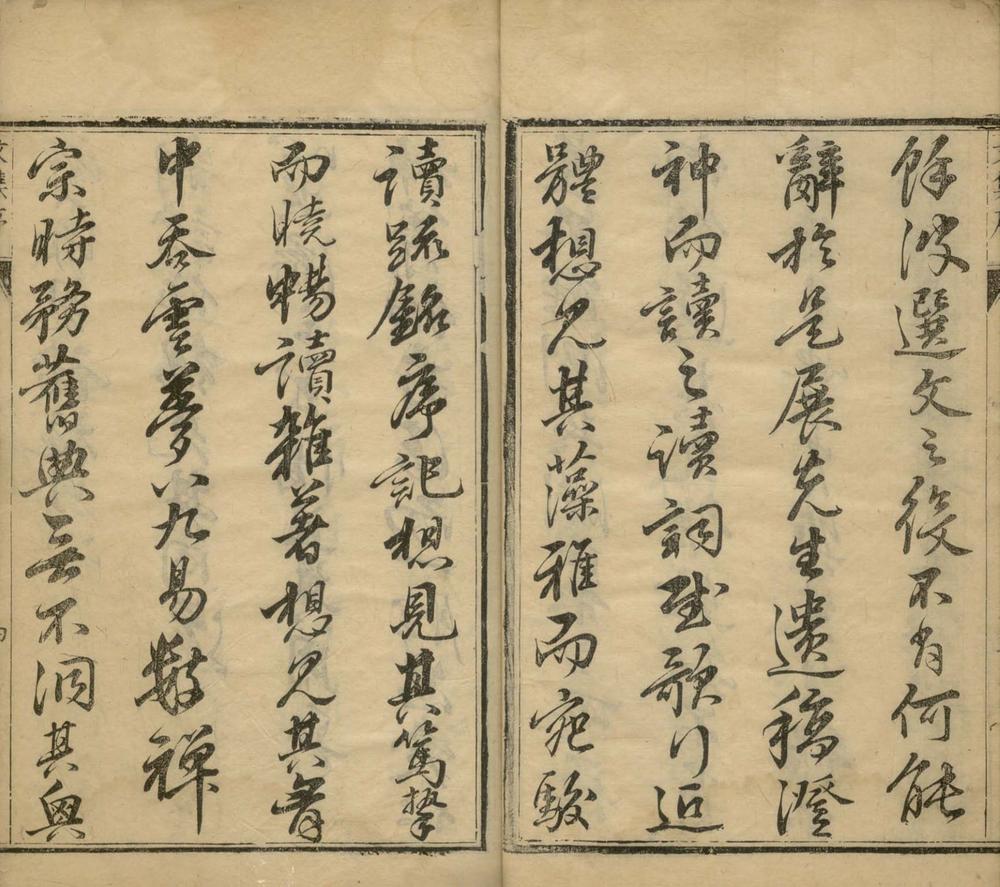 餘波選文之後不肖何能
辭於是展先生遺稿澄
神而讀之讀詞賦歌行近
體想見其藻雅而宛駿
讀疏銘序記想見其篤摯
而曉暢讀雜著想見其胷
中吞雲夢八九易數禪
宗時務舊典無不洞其奧